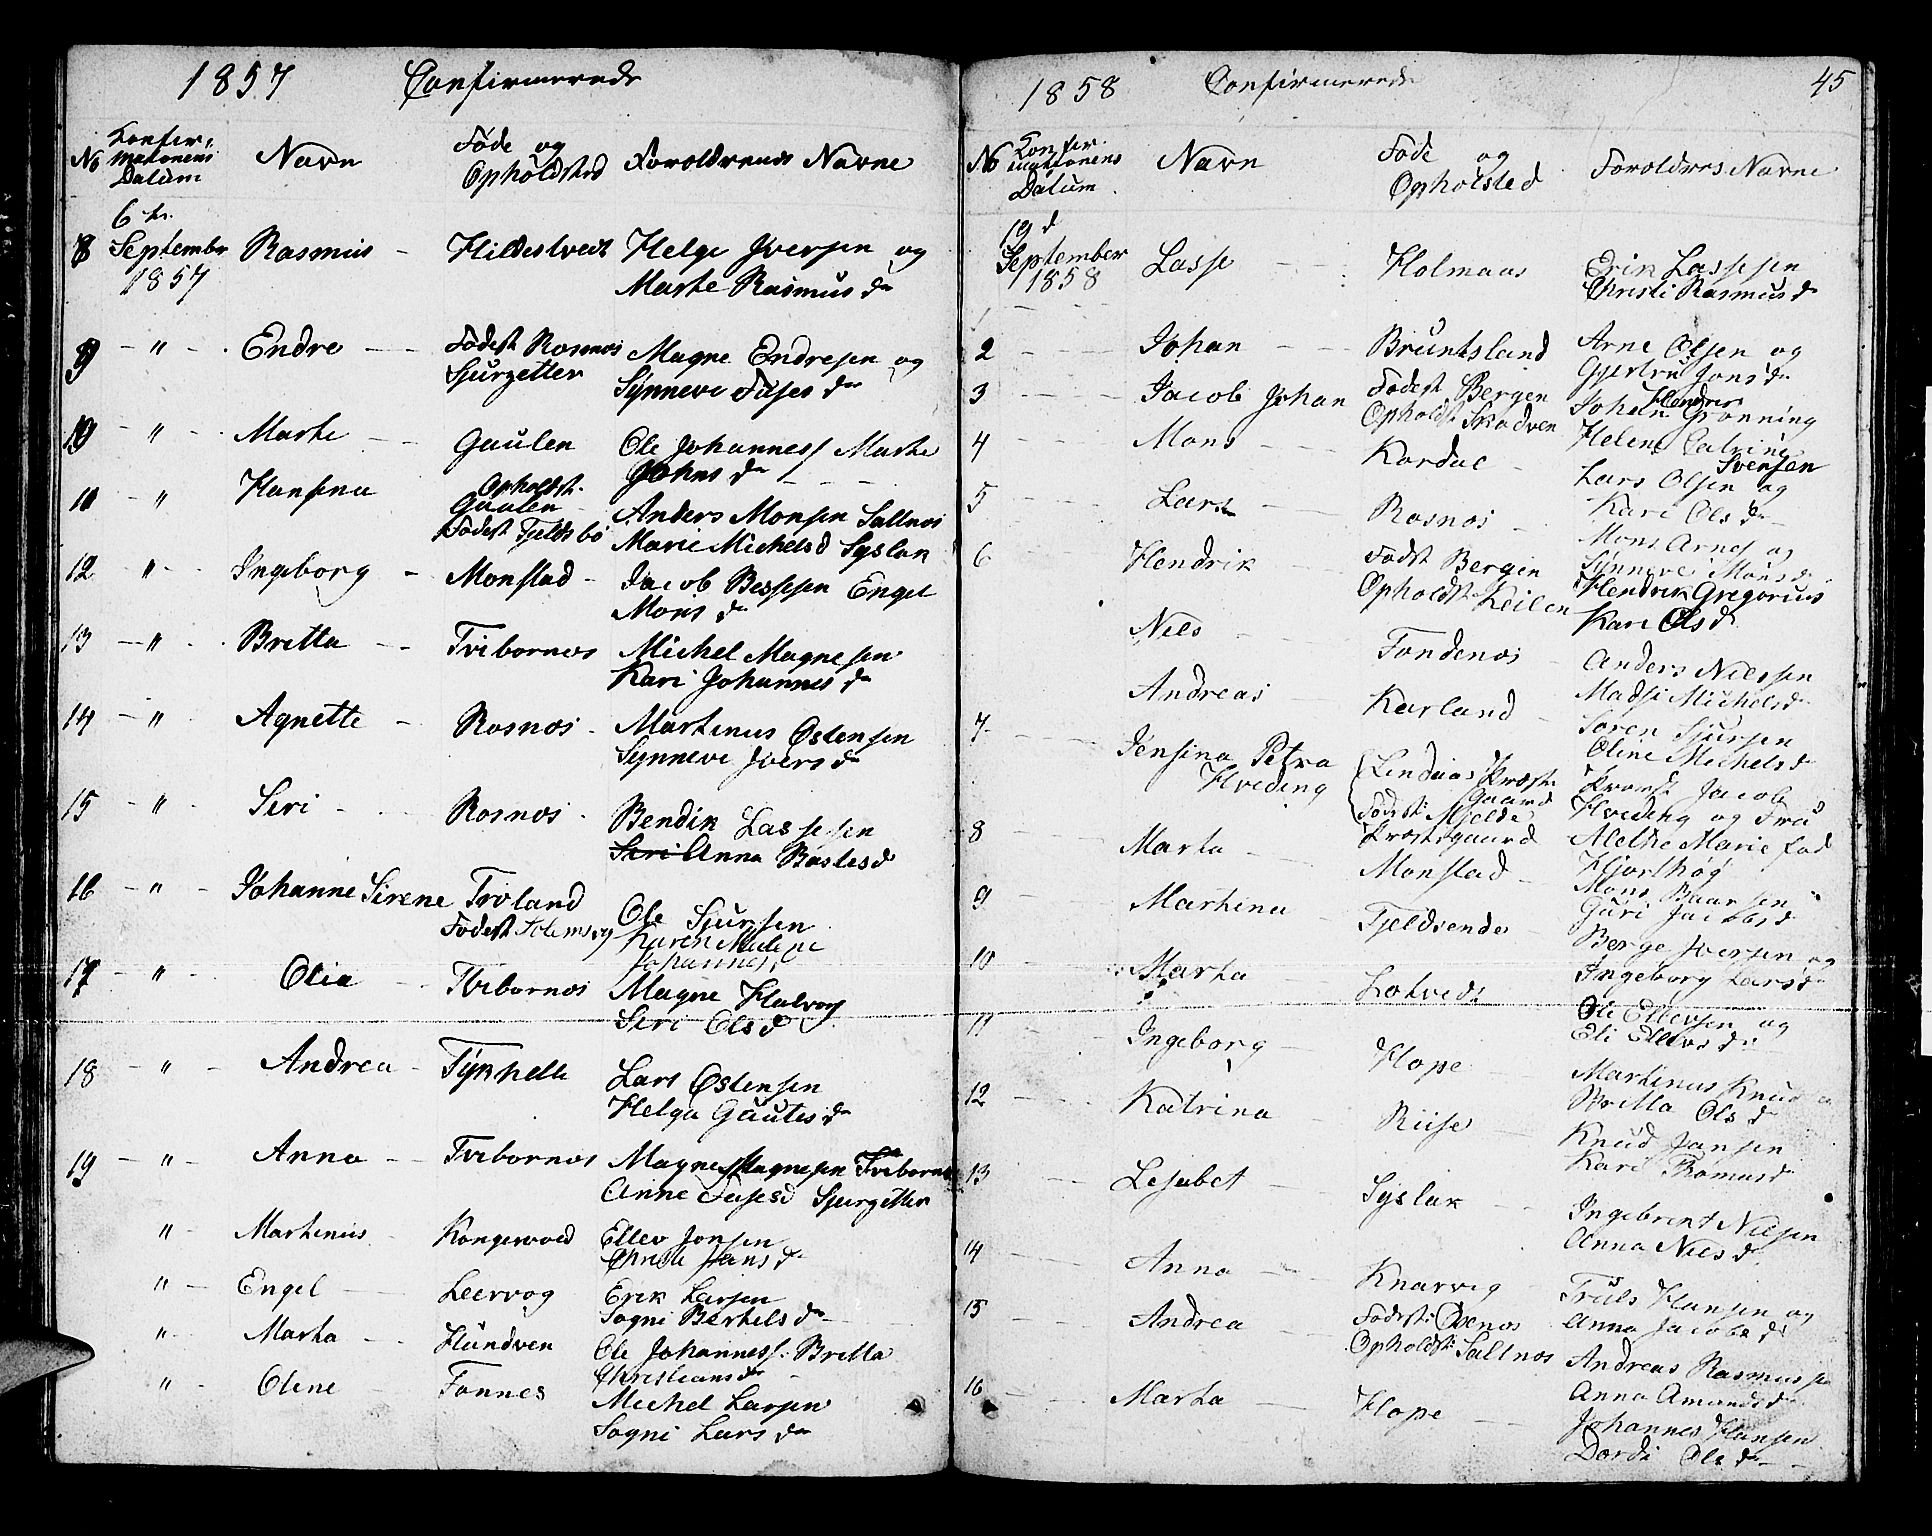 1857 Confirmerede
No Confirmationens Datum Navn Føde og Opholdsted Foroldrenes Navne
8 6te September 1857 Rasmus - Hildestvedt Helge Iversen og
Marte Rasmusdr
9 - " - Endre - Fødest Rosnos Magne Endresen og
Sjurzetter Synneve Fasesdr
10 " - Marte - Gaulen Ole Johanness Marte
Johnsdr
11 " Hansina Opholdst. Gaulen Anders Monsen Saltnos
Fødest Fjeldsbo Marie Michelsd Syslak
12 " - Ingeborg - Monstad - Jacob Bessesen Engel
Monsdr
13 - " - Britta - Tvibornos Michel Magnesen
Kari Johannesdr
14 - " Agnette - Rosnos - Martinus Ostensen
Synneve Iversdr
15 - " Seri - Rosnos - Bendik Lassesen
Seri Anna Bastesdr
16 - " - Johanne Sirene Troland Ole Sjursen
Fødest
Johannes
17 - " Olia - Tvibornos Magne Halvors
Seri Olsd
18 - " - Andrea - Tyknelle Lars Ostensen
Helga Gautesdr
19 - " - Anna - Tvibornos Magne Magnesen Tvibornos
Anne Fasesd Sjurzetter
" Martinus Kongesvold Ellev Jonsen
Jansdr
" - Engel - Leervog Erik Larsen
Sogni Bertelsdr
" - Marta - Hundven Ole Johanness. Britta
Christiansdr
" - Oline - Fonnes Michel Larsen
Sogni Larsdr
1858 Confirmerede 45
No Confirmationens Datum Navn Føde og Opholsted Foroldres Navne
19d September 1858 Lasse - Holmaas Erik Lassesen
1 Christi Rasmusdr
2 - Johan - Bruntsland Arne Olsen og
Gjertru Jonsdr
3 - Jacob Johan Fødest Bergen Johan Hendrik Grønning
Opholdst Skodven Helene Catrine Svensen
4 - Mons - Kordal - Lars Olsen og
Kari Olsdr
5 - Lars - Rosnos - Mons Arnes og
Synneve Monsdr
6 Hendrik Fødst Bergen Hendrik Gregorius
Opholdst Keilen Kari Olsd
Nils - Fondenos - Anders Nilssen
Madsi Michelsdr
Andreas Karland - Søren Sjursen
Oline Michelsd
7 - Jensina Petra Hveding Lindaas Præstegaard Provst Jacob
Fødest: Mjelde Præstegaard Hveding og Fru
Alethe Marie fød
Hjorthøg
8 - Marta - Monstad - Mons Baarsen
Guri Jacobsd
9 - Martina - Fjeldsende Berge Iversen og
Ingeborg Larsdr
10 - Marta - Lotvedt Ole Ellevsen og
Eli Ellevsdr
11 - Ingeborg - Hope - Martinus Knud
Britta Olsd
12 - Katrina - Riise - Knud Jansen
Kari Thomasd
13 - Lesabet - Syslak - Ingebrent Nilsen
Anna Nilsd
14 - Anna - Knarvig - Truls Hansen og
Anna Jacobsd
15 - Andrea - Fødest: Osenos Andreas Rasmussen
Opholdst: Saltnos Anna Amundsd
16 - Marta - Hope - Johannes Hansen
Dordi Olsdr